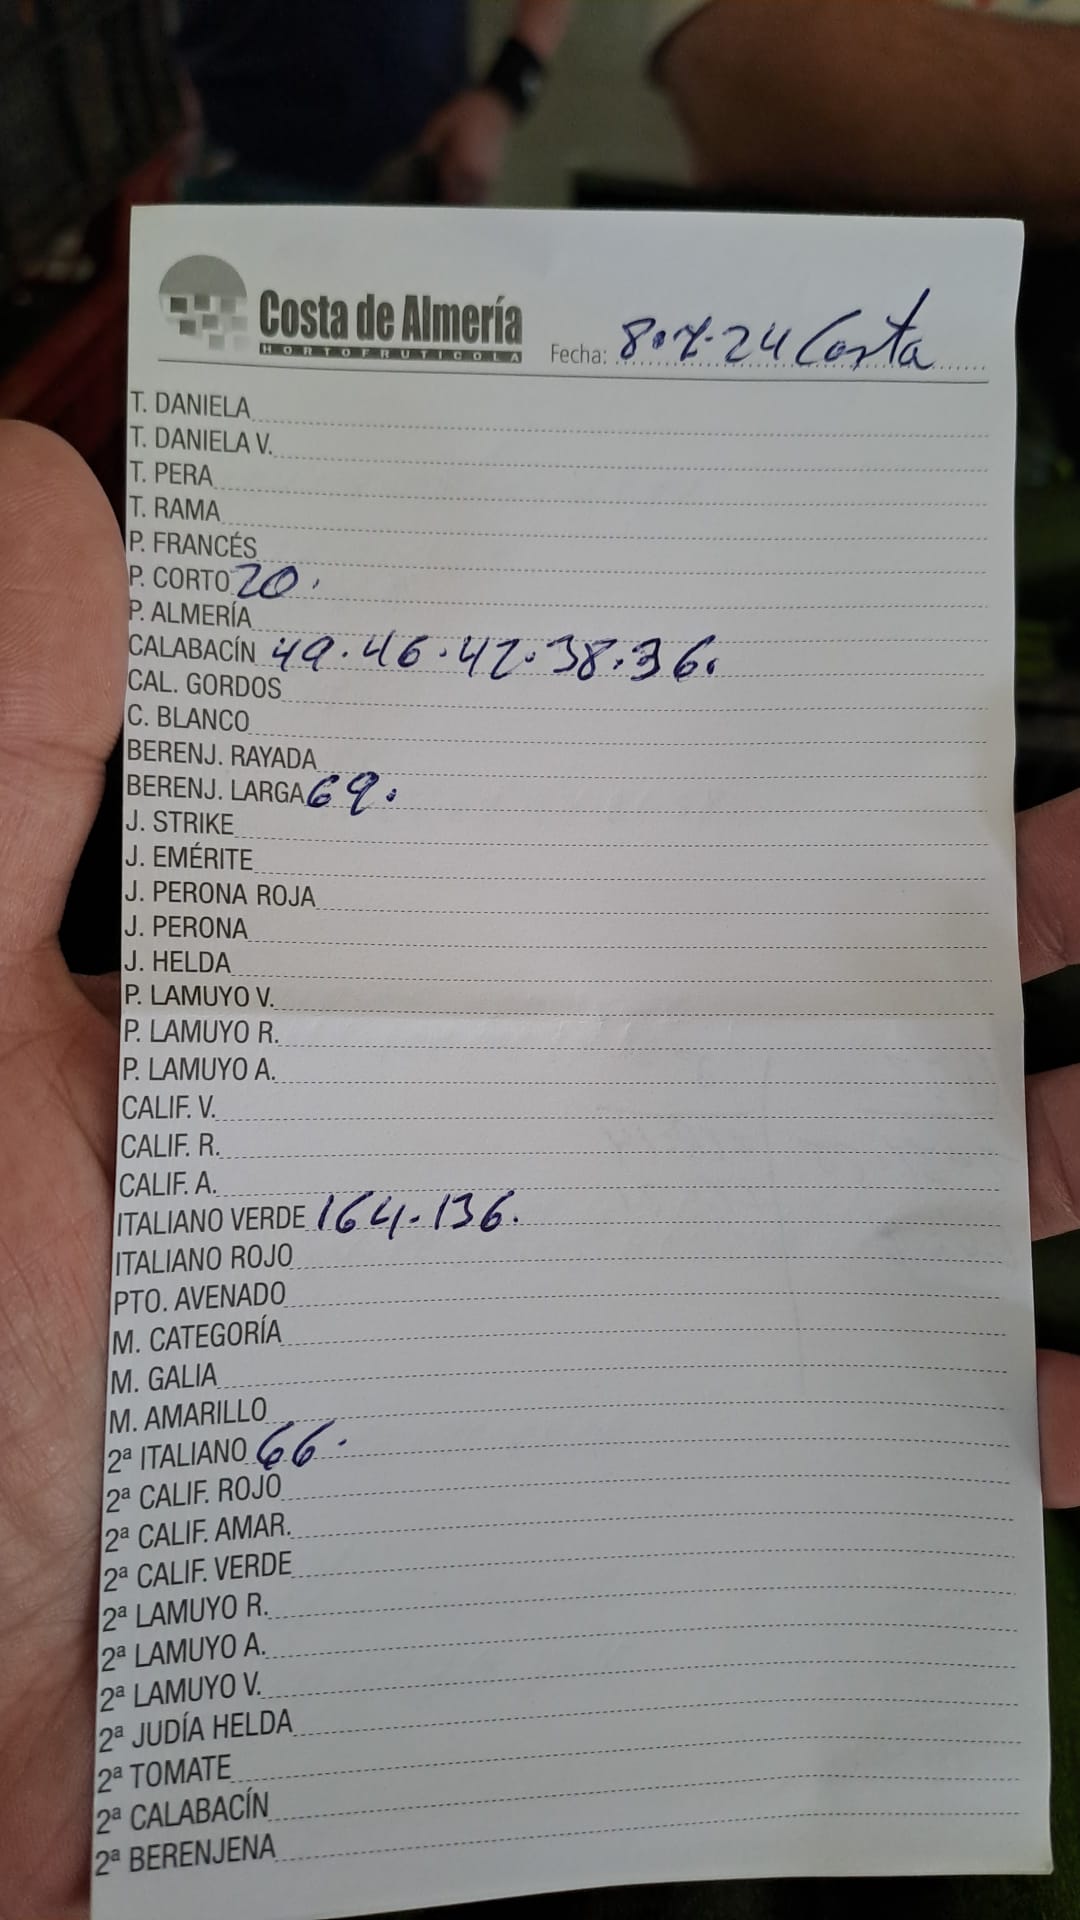 Costa de Almería
HORTOFRUTICOLA
Fecha: 8.7.24 Costa
T. DANIELA
T. DANIELA V.
T. PERA
T. RAMA
P. FRANCÉS
P. CORTO 20.
P. ALMERÍA
CALABACÍN 49.46.42.38.36.
CAL. GORDOS
C. BLANCO
BERENJ. RAYADA
BERENJ. LARGA 69.
J. STRIKE
J. EMÉRITE
J. PERONA ROJA
J. PERONA
J. HELDA
P. LAMUYO V.
P. LAMUYO R.
P. LAMUYO A.
CALIF. V.
CALIF. R.
CALIF. A.
ITALIANO VERDE 164.136.
ITALIANO ROJO
PTO. AVENADO
M. CATEGORÍA
M. GALIA
M. AMARILLO
2ª ITALIANO 66.
2ª CALIF. ROJO
2ª CALIF. AMAR.
2ª CALIF. VERDE
2ª LAMUYO R.
2ª LAMUYO A.
2ª LAMUYO V.
2ª JUDÍA HELDA
2ª TOMATE
2ª CALABACÍN
2ª BERENJENA